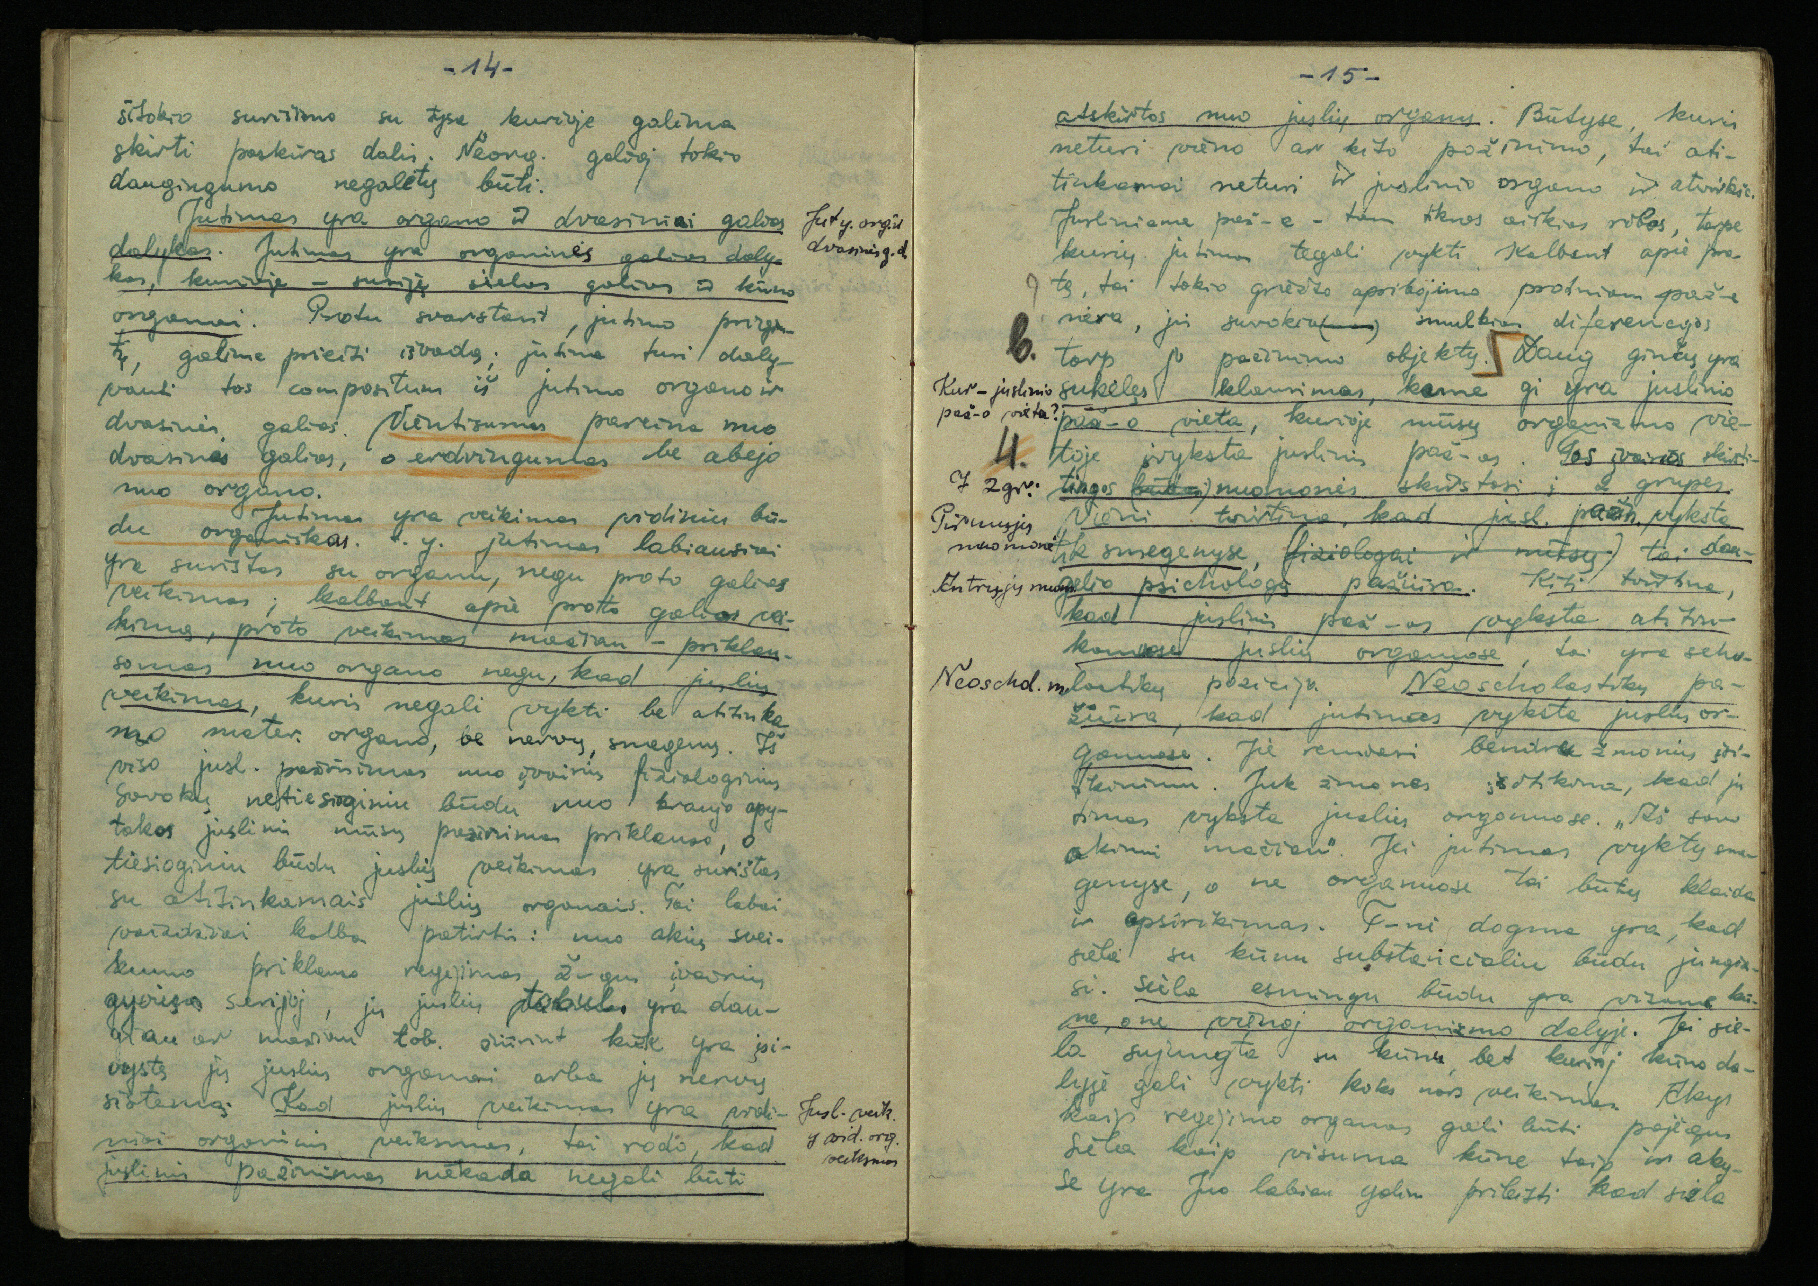 -14-
šitokio surišimo su kurioje galima
skirti paskiras dalis. Neorg. galioj tokio
daugingumo negalėtų būti.
Jutimas yra organo ir dvasiniai galios
dalykas. Jutimas yra organinės galios daly-
kas, kurioje – susiję sielos galios ir kūno
organai. Protu svarstant, jutimo prigim-
tį, galima prieiti išvadą; jutime turi daly-
vauti tos compositum iš jutimo organo ir
dvasinės galios. Vientisumas pareina nuo
dvasinės galios, o erdvingumas be abejo
nuo organo.
Jutimas yra veikimas vidiniu bū-
du organiškas. t.y. jutimas labiausiai
yra surištas su organu, negu proto galios
veikimas; kalbant apie proto galios vei-
kimą, proto veikimas mažiau – priklau-
somas nuo organo negu, kad juslių
veikimas, kuris negali vykti be atitinka
mo mater. organo, be nervų, smegenų. Iš
viso jusl. pažinimas nuo įvairių fiziologinių
sąvokų netiesioginiu būdu nuo kraujo apy-
takos juslinis mūsų pažinimas priklauso, o
tiesioginiu būdu juslių veikimas yra surištas
su atitinkamais juslių organais. Tai labai
vaizdžiai kalba patirtis: nuo akių svei-
kumo priklauso regėjimas, ž-gus įvairių
gyvūnų serijoj, jų juslių yra dau-
giau ar mažiau tob. žiūrint kiek yra įsi-
vystę jų juslių organai arba jų nervų
sistema. Kad juslių veikimas yra vidi-
niai organinis veiksmas, tai rodo, kad
juslinis pažinimas niekada negali būti
Jut y. org. ir
dvasinės g. d.
Jusl. veik.
y vid. org.
veiksmas
-15-
atskirtas nuo juslių organų. Būtyse, kuris
neturi vieno ar kito pažinimo, tai ati-
tinkamai neturi ir juslinio organo ir atvirkšč.
Jusliniame paž-e – tam tikros aiškios ribos, tarpe
kurių jutimas tegali vykti. Kalbant apie pro-
tą, tai tokio griežto apribojimo protiniam paž-e
nėra, jis suvokia smulkias diferencijas
tarp jo pažinimo objektų. Daug ginčų yra
sukėlęs klausimas, kame gi yra juslinio
paž-o vieta, kurioje mūsų organizmo vie-
toje įvyksta juslinis paž-as. Tos įvairios skirti-
tingos nuomonės skirstosi į 2 grupes.
Vieni tvirtina, kad jusl. pažin. vyksta
tik smegenyse, (fiziologai ir mūsų) tai dau-
gelio psichologų pažiūra. Kiti tvirtina,
kad juslinis paž-as vyksta atitin-
kamose juslių organose, tai yra scho-
lastikų pozicija. Neoscholastikų pa-
žiūra, kad jutimas vyksta juslių or-
ganuose. Jie remiasi bendru žmonių įsi-
tikinimu. Juk žmonės įsitikina, kad ju
timas vyksta juslių organuose. „Aš savo
akimi mačiau". Jei jutimas vyktų sme-
genyse, o ne organuose tai būtų klaida
ir apsirikimas. F-ni dogma yra, kad
siela su kūnu substancialiu būdu jungia-
si. Siela esmingu būdu yra visame kū-
ne, o ne vienoj organizmo dalyje. Jei sie-
la sujungta su kūnu, bet kurioj kūno da-
lyje gali vykti koks nors veikimas. Akys
kaip regėjimo organas gali būti pajėgus
Siela kaip visuma kūne taip ir aky-
se yra Juo labiau galim prileisti kad siela
?
6.
Kur – juslinio
paž-o vieta?
4.
Į 2 gr.:
Pirmųjų
nuomonė
Antrųjų nuom.
Neoschol. n.